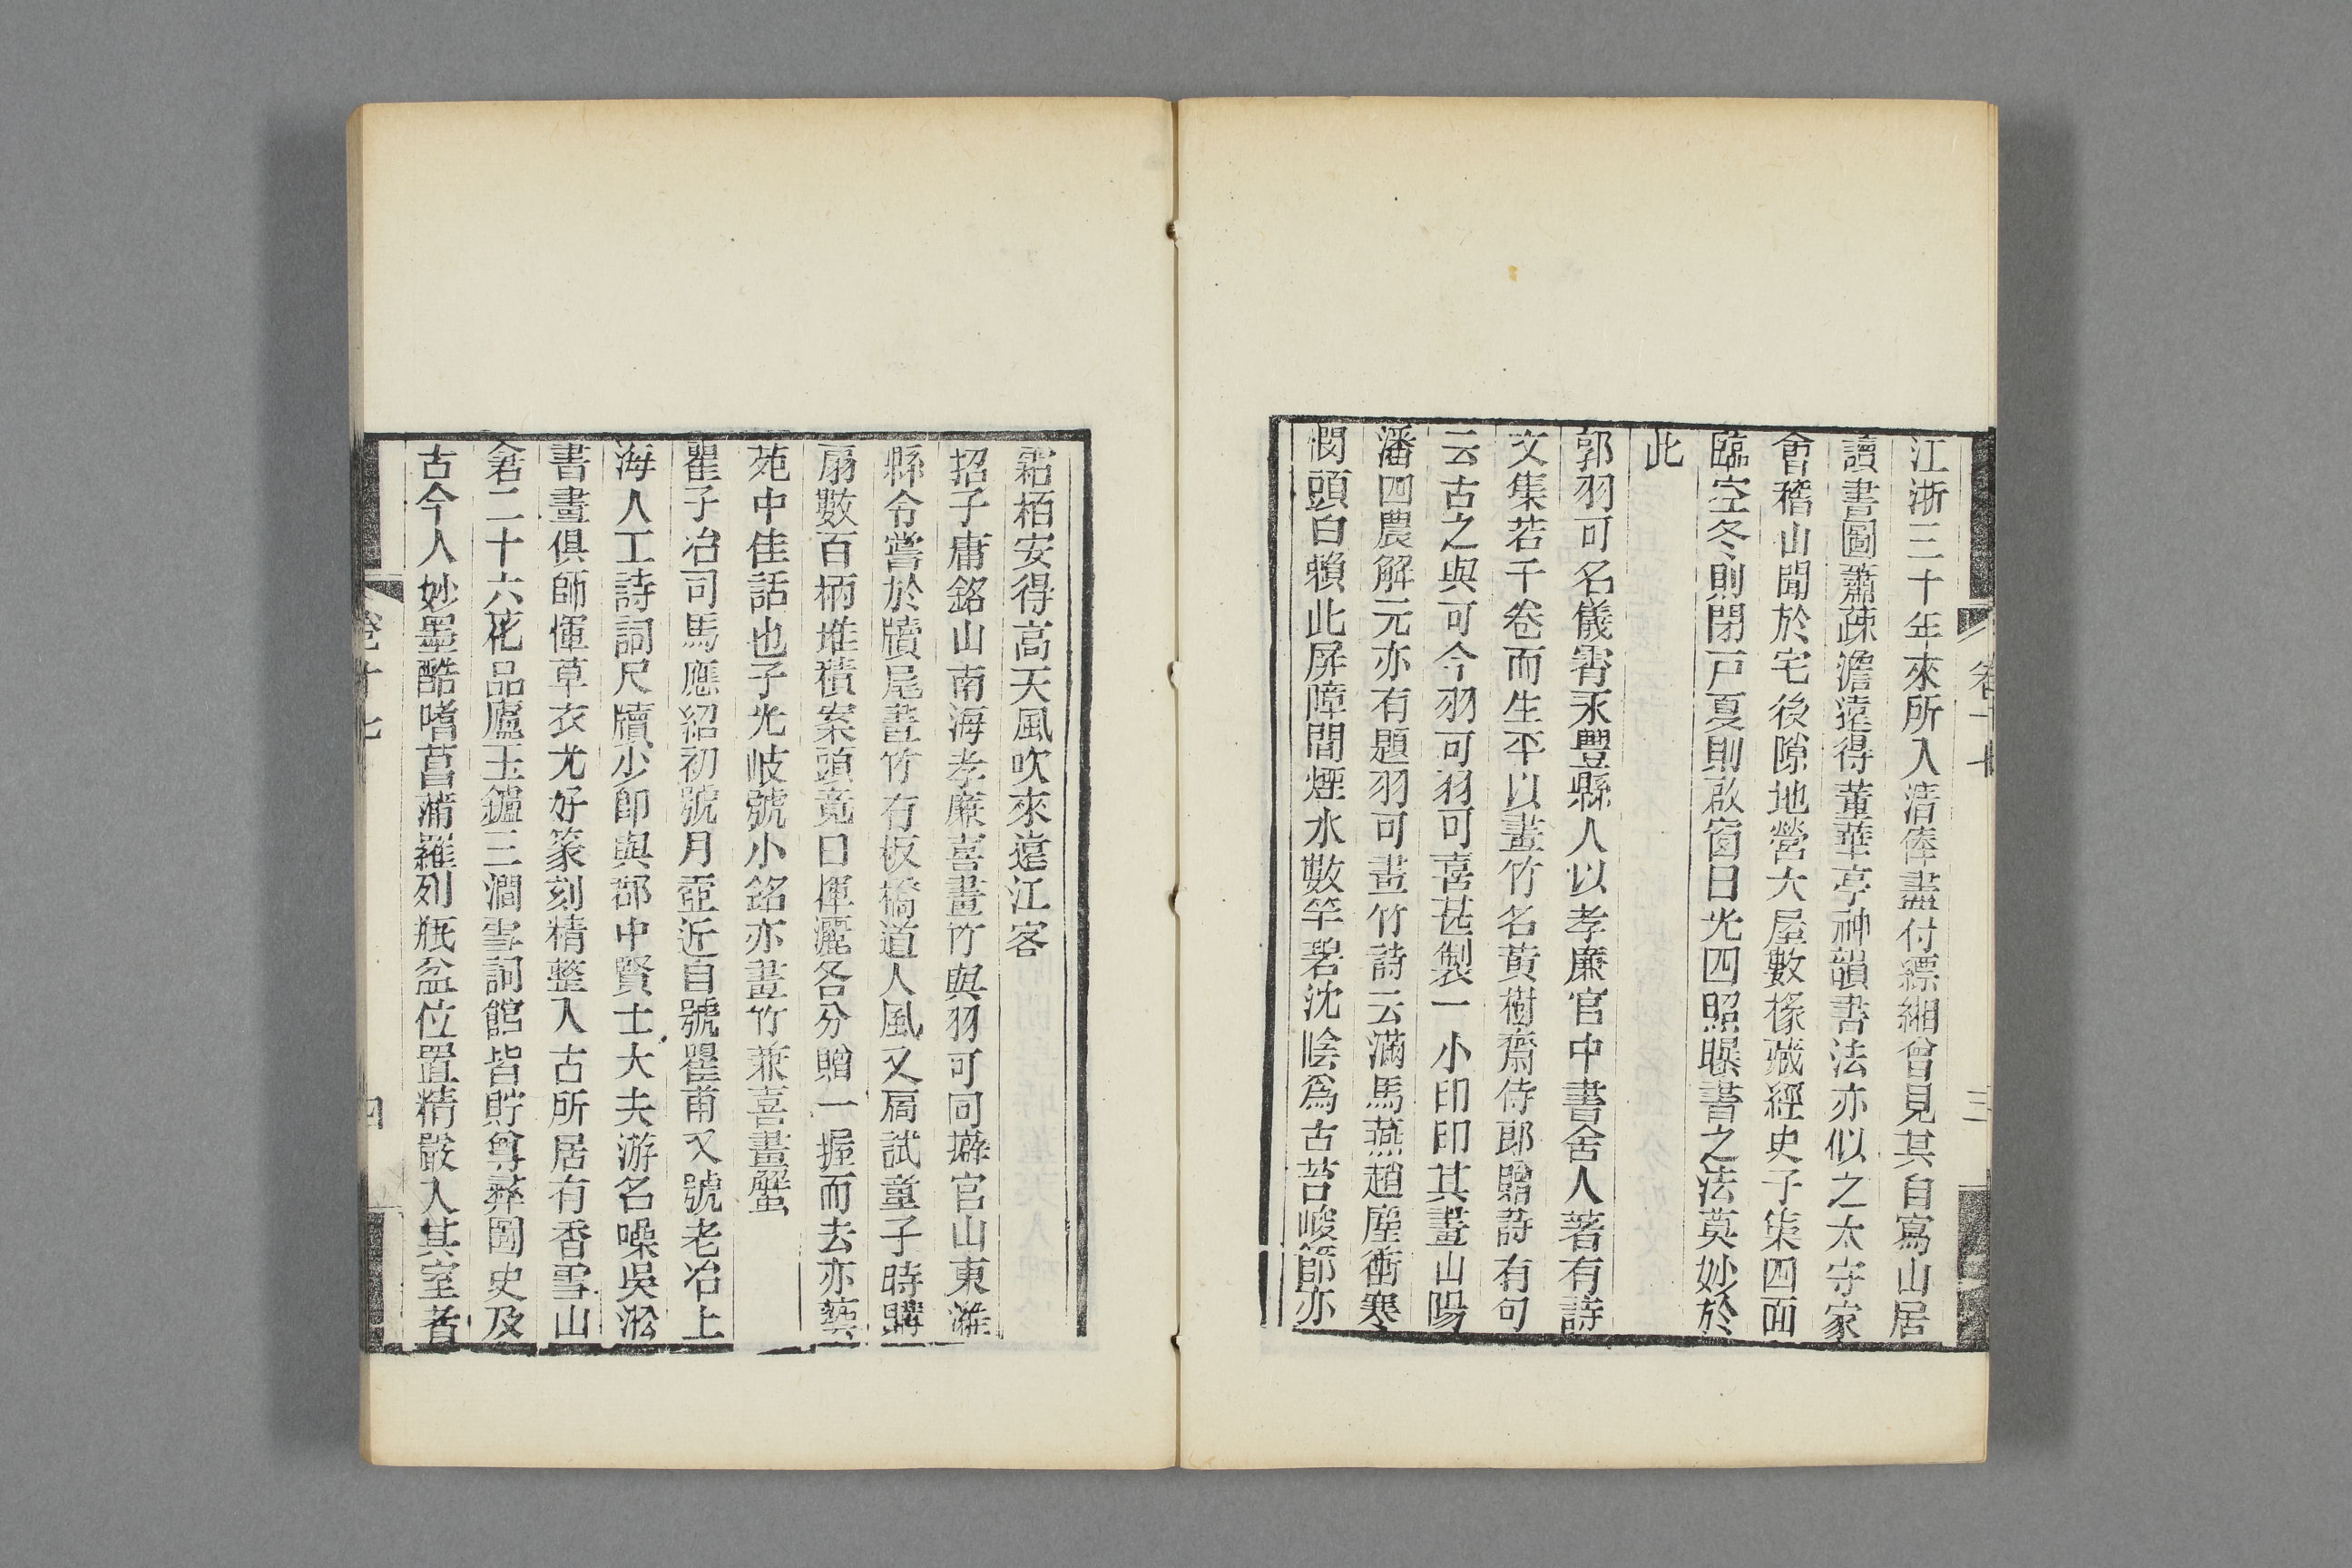 江浙三十年來所入清俸盡付縹緗曾見其自寫山居
讀書圖蕭疎澹遠得董華亭神韻書法亦似之太守家
會稽山聞於宅後隙地營大屋數椽藏經史子集四面
臨空冬則閉戸夏則啟窗日光四照曝書之法莫妙於
此
郭羽可名儀霄永豐縣人以孝廉官中書舍人著有詩
文集若干卷而生平以畫竹名黃樹齋侍郎贈詩有句
云古之與可今羽可羽可喜甚製一小印印其畫山陽
潘四農解元亦有題羽可畫竹詩云滿馬燕趙塵衝寒
憫頭白賴此屏障間煙水數竿碧沈陰爲古苔峻節亦
霜栢安得高天風吹來遠江客
招子庸銘山南海孝廉喜畫竹與羽可同癖官山東濰
縣令嘗於牘尾畫竹有板橋道人風又扃試童子時購
扇數百柄堆積案頭竟日揮灑各分贈一握而去亦藝
苑中佳話也子光岐號小銘亦畫竹兼喜畫蟹
瞿子冶司馬應紹初號月壺近自號瞿甫又號老冶上
海人工詩詞尺牘少卽與郡中賢士大夫游名噪吳淞
書畫俱師惲草衣尤好篆刻精整入古所居有香雪山
倉二十六花品廬玉鑪三澗雪詞館皆貯尊彝圖史及
古今人妙墨酷嗜菖蒲羅列瓶盆位置精嚴入其室者
卷十七
四